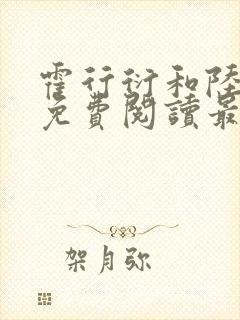 霍行衍和陸
免費閱讀最
架月弥